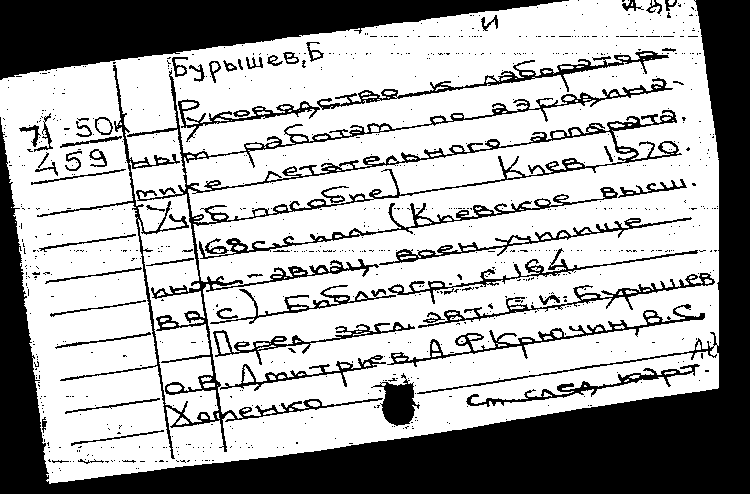 и др.
и
Бурышев, Б
Руководство к лаборатор-
71-50к
ным работам по аэродина-
459
мике летательного аппарата.
[Учеб. пособие] Киев, 1970.
168 с. с илл. (Киевское высш.
инж.-авиац. воен училище
ВВС). Библиогр.: с. 164.
Перед загл. авт: Б.И. Бурышев,
О.В. Дмитриев, А.Ф. Крючин, В.С.
Хоменко см след. карт.